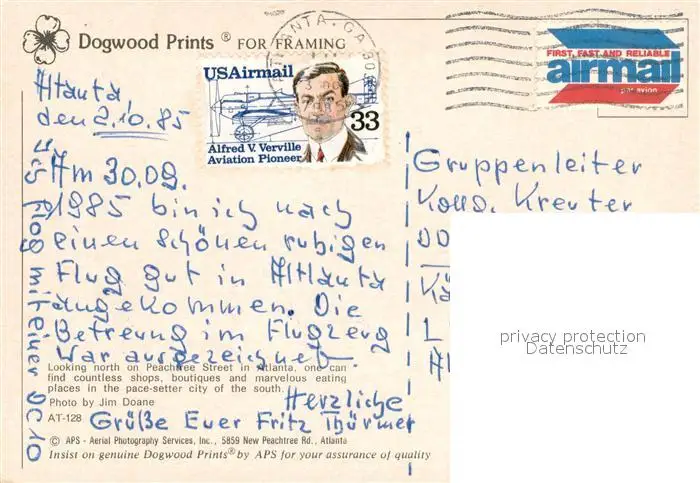 Dogwood Prints ® FOR FRAMING
USAirmail
33
Alfred V. Verville
Aviation Pioneer
ATLANTA, GA
FIRST, FAST AND RELIABLE
airmail
par avion
Altauta
den 2.10.85
Am 30.09.
1985 bin ich nach
einen schönen ruhigen
Flug gut in Altlauta
angekommen. Die
Betreung im Flugzeug
war ausgezeichnet.
Herzliche
Grüße Euer Fritz Thürmer
flog mit einer DC 10
Gruppenleiter
Koll. Kreuter
privacy protection
Datenschutz
Looking north on Peachtree Street in Atlanta, one can
find countless shops, boutiques and marvelous eating
places in the pace-setter city of the south.
Photo by Jim Doane
AT-128
© APS - Aerial Photography Services, Inc., 5859 New Peachtree Rd., Atlanta
Insist on genuine Dogwood Prints® by APS for your assurance of quality